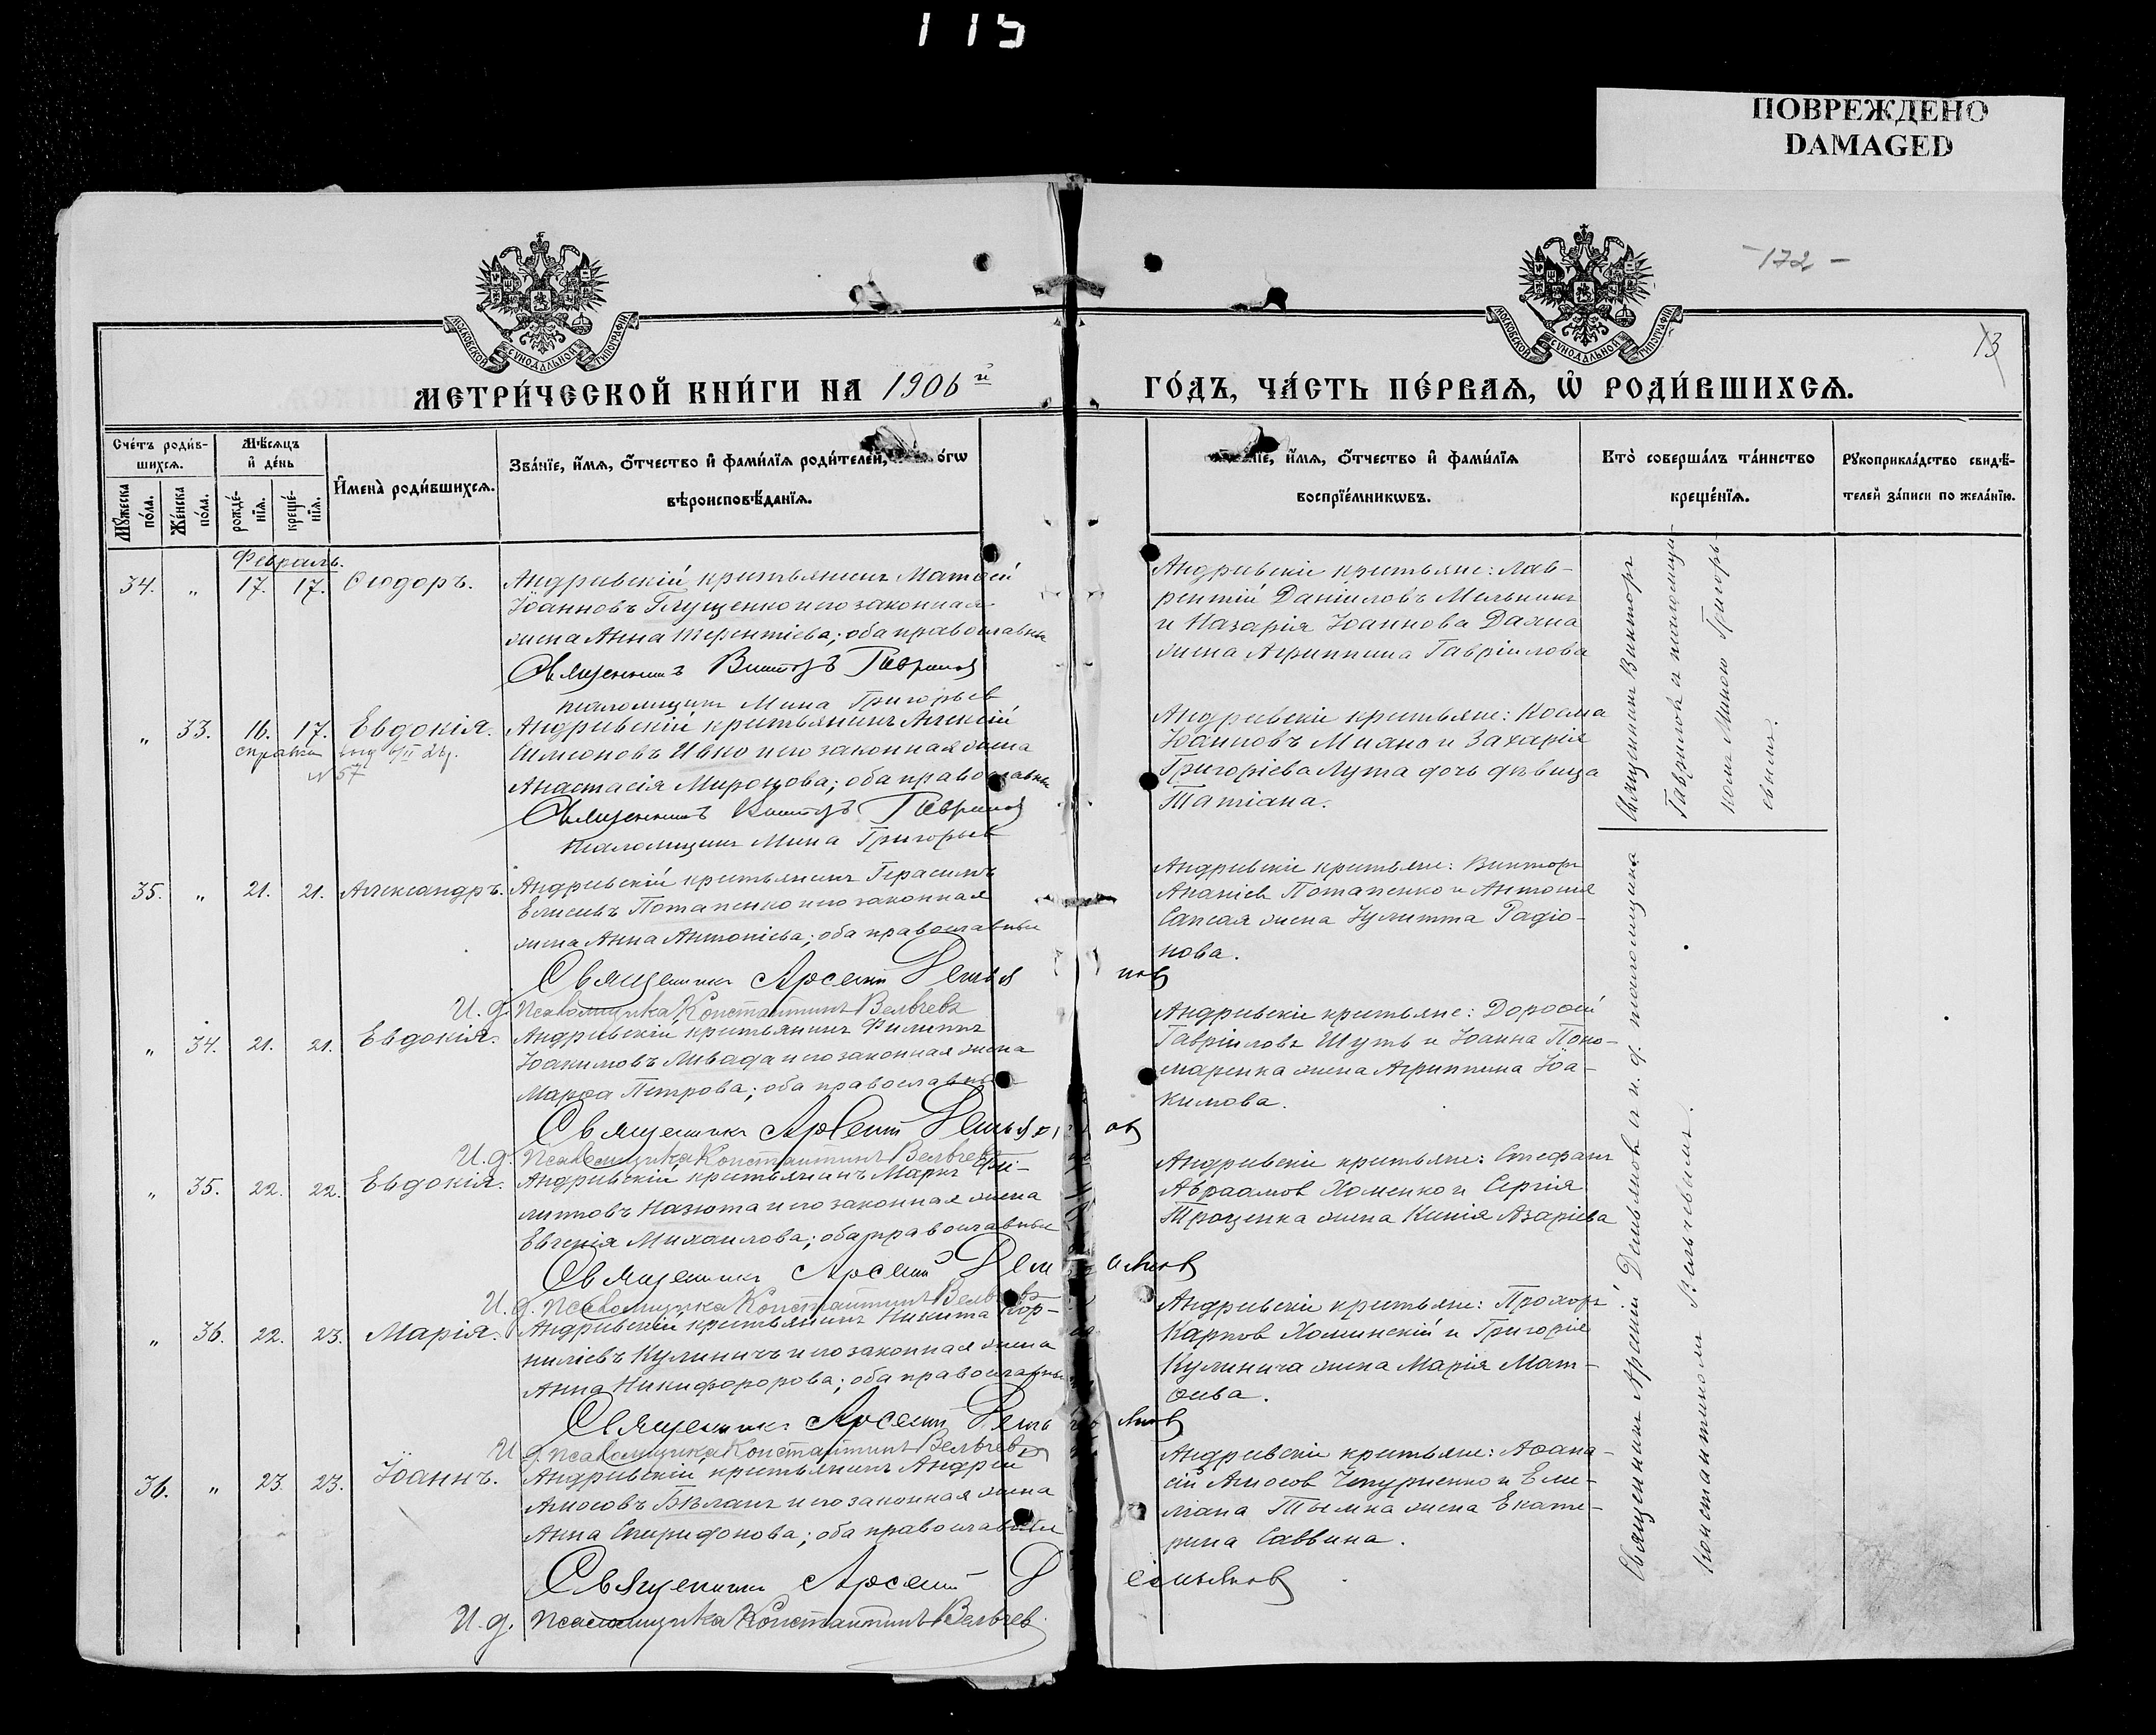 115
ПОВРЕЖДЕНО
DAMAGED
-172-
13
МОСКОВСКОЙ СѴНОДАЛЬНОЙ ТИПОГРАФІИ
МОСКОВСКОЙ СѴНОДАЛЬНОЙ ТИПОГРАФІИ
МЕТРИ́ЧЕСКОЙ КНИ́ГИ НА 1906й
ГО́ДЪ, ЧА́СТЬ ПЕ́РВАѦ, Ѡ҆ РОДИ́ВШИХСѦ.
Сче́тъ роди́вшихсѧ.
Мѣ́сѧцъ и҆ де́нь
Мꙋ́жеска по́ла.
Же́нска по́ла.
рожде́нїѧ.
креще́нїѧ.
И҆мена̀ роди́вшихсѧ.
Зва́нїе, и҆́мѧ, ѻ҆́тчество и҆ фами́лїѧ роди́телей, о́гѡ
вѣроисповѣ́данїѧ.
нїе, и҆́мѧ, ѻ҆́тчество и҆ фами́лїѧ
воспрїе́мникѡвъ.
Кто̀ соверша́лъ та́инство
креще́нїѧ.
Рꙋкоприкла́дство свидѣ́-
телей за́писи по жела́нїю.
Февраль.
34. " 17. 17. Ѳеодоръ.
Андреевскій крестьянинъ Матѳей
Іоанновъ Глущенко и его законная
жена Анна Терентіева; оба православны
Священникъ Викторъ Гаврилов
псаломщикъ Мина Григорьев
Андреевскіе крестьяне: Лав-
рентій Даніиловъ Мельникъ
и Назарія Іоаннова Даяна
жена Агриппина Гавріилова
" 33. 16. 17. Евдокія.
справка
N 57
Андреевскій крестьянинъ Алексій
Симеоновъ Ивко и его законная жена
Анастасія Миронова; оба православны
Священникъ Викторъ Гаврилов
Псаломщикъ Мина Григорьев
Андреевскіе крестьяне: Косма
Іоанновъ Мияно и Захарія
Григоріева Лута дочь дѣвица
Татіана.
Священник Викторъ
Гаврилов и псаломщи-
комъ Миною Григорь-
евымъ.
35. " 21. 21. Александръ.
Андреевскій крестьянинъ Герасимъ
Елисеевъ Потапенко и его законная
жена Анна Антоніева; оба православные
Священникъ Арсений Демьянов
И. д. Псаломщика Константинъ Вельчевъ
Андреевскіе крестьяне: Викторъ
Ананіев Потапенко и Антонія
Сапсая жена Іулитта Радіо-
нова.
" 34. 21. 21. Евдокія.
Андреевскій крестьянинъ Филиппъ
Іоакимовъ Ливада и его законная жена
Марѳа Петрова; оба православные
Священникъ Арсений Демьянов
И. д. Псаломщика Константинъ Вельчевъ
Андреевскіе крестьяне: Дороѳей
Гавріиловъ Шуть и Іоанна Поно-
маренка жена Агриппина Іоа-
кимова.
" 35. 22. 22. Евдокія.
Андреевскій крестьянинъ Маркъ Фи-
липповъ Назюта и его законная жена
Евгенія Михаилова; оба православные
Священникъ Арсений Демьянов
И. д. Псаломщика Константинъ Вельчевъ
Андреевскіе крестьяне: Стефанъ
Авраамов Хоменко и Сергія
Троценка жена Ксенія Азаріева
" 36. 22. 23. Марія.
Андреевскій крестьянинъ Никита Кор-
ниліевъ Кулиничъ и его законная жена
Анна Никифоророва; оба православные
Священникъ Арсений Демьянов
И. д. Псаломщика Константинъ Вельчевъ
Андреевскіе крестьяне: Прохоръ
Карпов Хоминскій и Григорія
Кулинича жена Марія Мат-
ѳеева.
36. " 23. 23. Іоаннъ.
Андреевскій крестьянинъ Андрей
Амосовъ Бѣланъ и его законная жена
Анна Спиридонова; оба православные
Священникъ Арсений Демьянов
И. д. Псаломщика Константинъ Вельчев.
Андреевскіе крестьяне: Аѳана-
сій Амосов Чепурненко и Еми-
ліана Тымка жена Екате-
рина Саввина.
Священником Арсеній Демьянов и и. д. псаломщика
Константином Вельчевымъ.